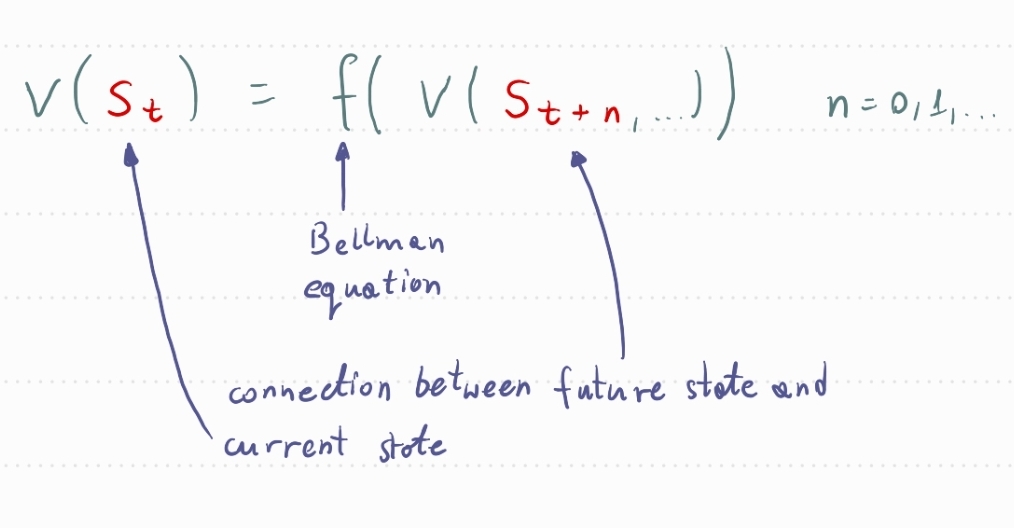 v(St) = f(v(St+n,...)) n=0,1,...
Bellman
equation
connection between future state and
current state